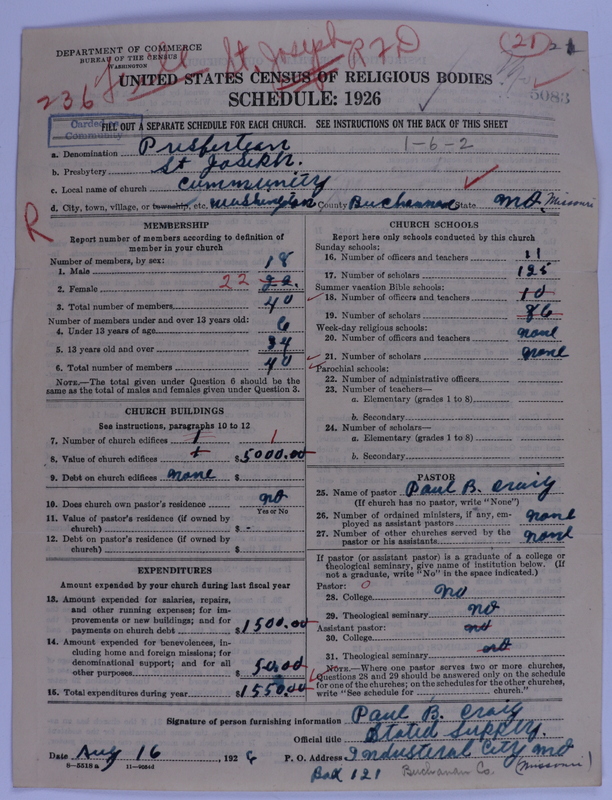 DEPARTMENT OF COMMERCE
BUREAU OF THE CENSUS
WASHINGTON
St. Joseph RFD
(21) 21
236
UNITED STATES CENSUS OF RELIGIOUS BODIES
SCHEDULE: 1926
5083
Carded as
Community
FILL OUT A SEPARATE SCHEDULE FOR EACH CHURCH. SEE INSTRUCTIONS ON THE BACK OF THIS SHEET
1-6-2
a. Denomination Presbertean
b. Presbytery St Joseph.
c. Local name of church Community
d. City, town, village, or township, etc. Washington County Buchannan State Mo. Missouri
R
MEMBERSHIP
Report number of members according to definition of member in your church
Number of members, by sex:
1. Male 18
2. Female 22 22.
3. Total number of members 40
Number of members under and over 13 years old:
4. Under 13 years of age 6
5. 13 years old and over 34
6. Total number of members 40
NOTE.—The total given under Question 6 should be the same as the total of males and females given under Question 3.
CHURCH BUILDINGS
See instructions, paragraphs 10 to 12
7. Number of church edifices 1 1
8. Value of church edifices 1 $5000.00
9. Debt on church edifices none $
10. Does church own pastor's residence no
Yes or No
11. Value of pastor's residence (if owned by church) $-
12. Debt on pastor's residence (if owned by church) $
EXPENDITURES
Amount expended by your church during last fiscal year
13. Amount expended for salaries, repairs, and other running expenses; for improvements or new buildings; and for payments on church debt $1500.00
14. Amount expended for benevolences, including home and foreign missions; for denominational support; and for all other purposes $50.00
15. Total expenditures during year $1550.00
CHURCH SCHOOLS
Report here only schools conducted by this church
Sunday schools:
16. Number of officers and teachers 11
17. Number of scholars 125
Summer vacation Bible schools:
18. Number of officers and teachers 10
19. Number of scholars 86
Week-day religious schools:
20. Number of officers and teachers none
21. Number of scholars none
Parochial schools:
22. Number of administrative officers
23. Number of teachers—
a. Elementary (grades 1 to 8)
b. Secondary
24. Number of scholars—
a. Elementary (grades 1 to 8)
b. Secondary
PASTOR
25. Name of pastor Paul B. Craig
(If church has no pastor, write "None")
26. Number of ordained ministers, if any, employed as assistant pastors none
27. Number of other churches served by the pastor or his assistants none
If pastor (or assistant pastor) is a graduate of a college or theological seminary, give name of institution below. (If not a graduate, write "No" in the space indicated.)
Pastor: 0
28. College no
29. Theological seminary no
Assistant pastor:
30. College no
31. Theological seminary no
NOTE.—Where one pastor serves two or more churches, Questions 28 and 29 should be answered only on the schedule for one of the churches; on the schedules for the other churches, write "See schedule for church."
Signature of person furnishing information Paul B. Craig
Official title Stated Supply.
Date Aug 16, 1926 P. O. Address Industeral City Mo
8—5518 a 11—9054d Box 121 Buchanan Co. (Missouri)